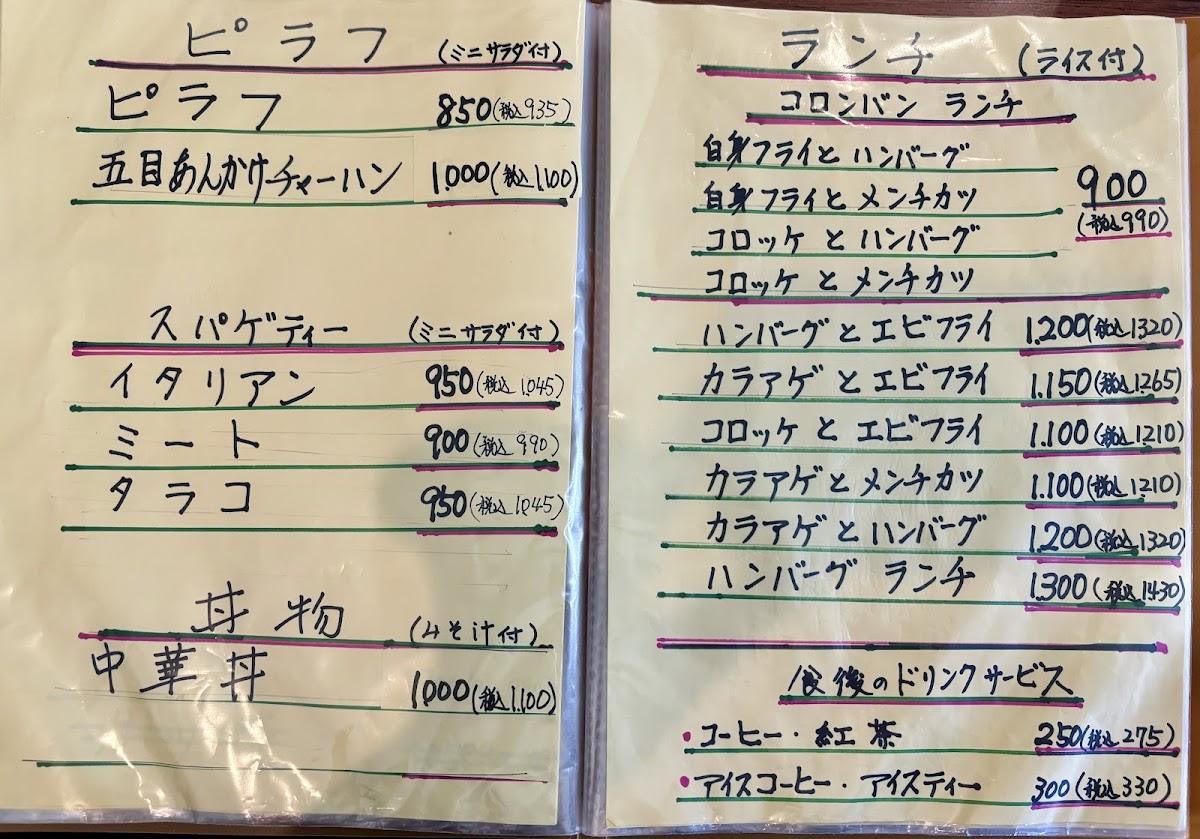 ピラフ (ミニサラダ付)
ピラフ 850(税込935)
五目あんかけチャーハン 1.000(税込1.100)
スパゲティー (ミニサラダ付)
イタリアン 950(税込1.045)
ミート 900(税込990)
タラコ 950(税込1.045)
丼物 (みそ汁付)
中華丼 1.000(税込1.100)
ランチ (ライス付)
コロンバン ランチ
自身フライと ハンバーグ
自身フライと メンチカツ
コロッケ と ハンバーグ
コロッケ と メンチカツ
900
(税込990)
ハンバーグ と エビフライ 1.200(税込1320)
カラアゲ と エビフライ 1.150(税込1265)
コロッケ と エビフライ 1.100(税込1210)
カラアゲ と メンチカツ 1.100(税込1210)
カラアゲ と ハンバーグ 1.200(税込1320)
ハンバーグ ランチ 1.300(税込1430)
食後のドリンクサービス
・コーヒー・紅茶 250(税込275)
・アイスコーヒー・アイスティー 300(税込330)